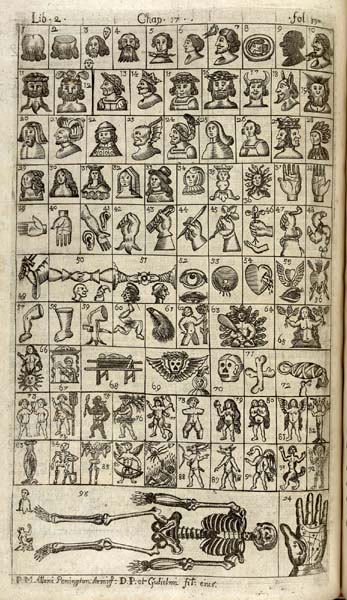 Lib. 2. Chap. 17. fol
1 2 3 4 5 6 7 8 9 10
11 12 13 14 15 16 17 18
20 21 22 23 24 25 26 27 28
29 30 31 32 33
39 40 41 42 43 44 45 46 47
50 51 52 53 54 55
49 56
57 58 59 60 61 62 63 64 65
66 71
67 68 69 70 72
73 74 75 76 77 78 79 80
83 84 85
88 89
98 94
P. M. Allani Penington Armif: D. P. et Gulielmi fil: eius.